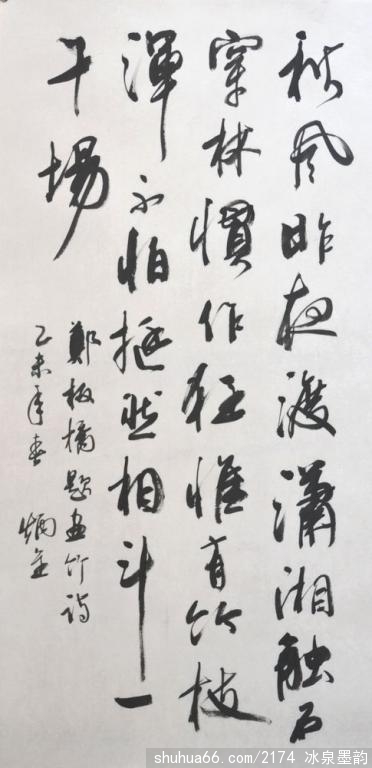 秋风昨夜渡瀟湘触石
穿林慣作狂惟有竹枝
渾不怕挺然相斗一
千場
鄭板橋題画竹詩
乙未年春
shuhua66.com/2174 冰泉墨韵